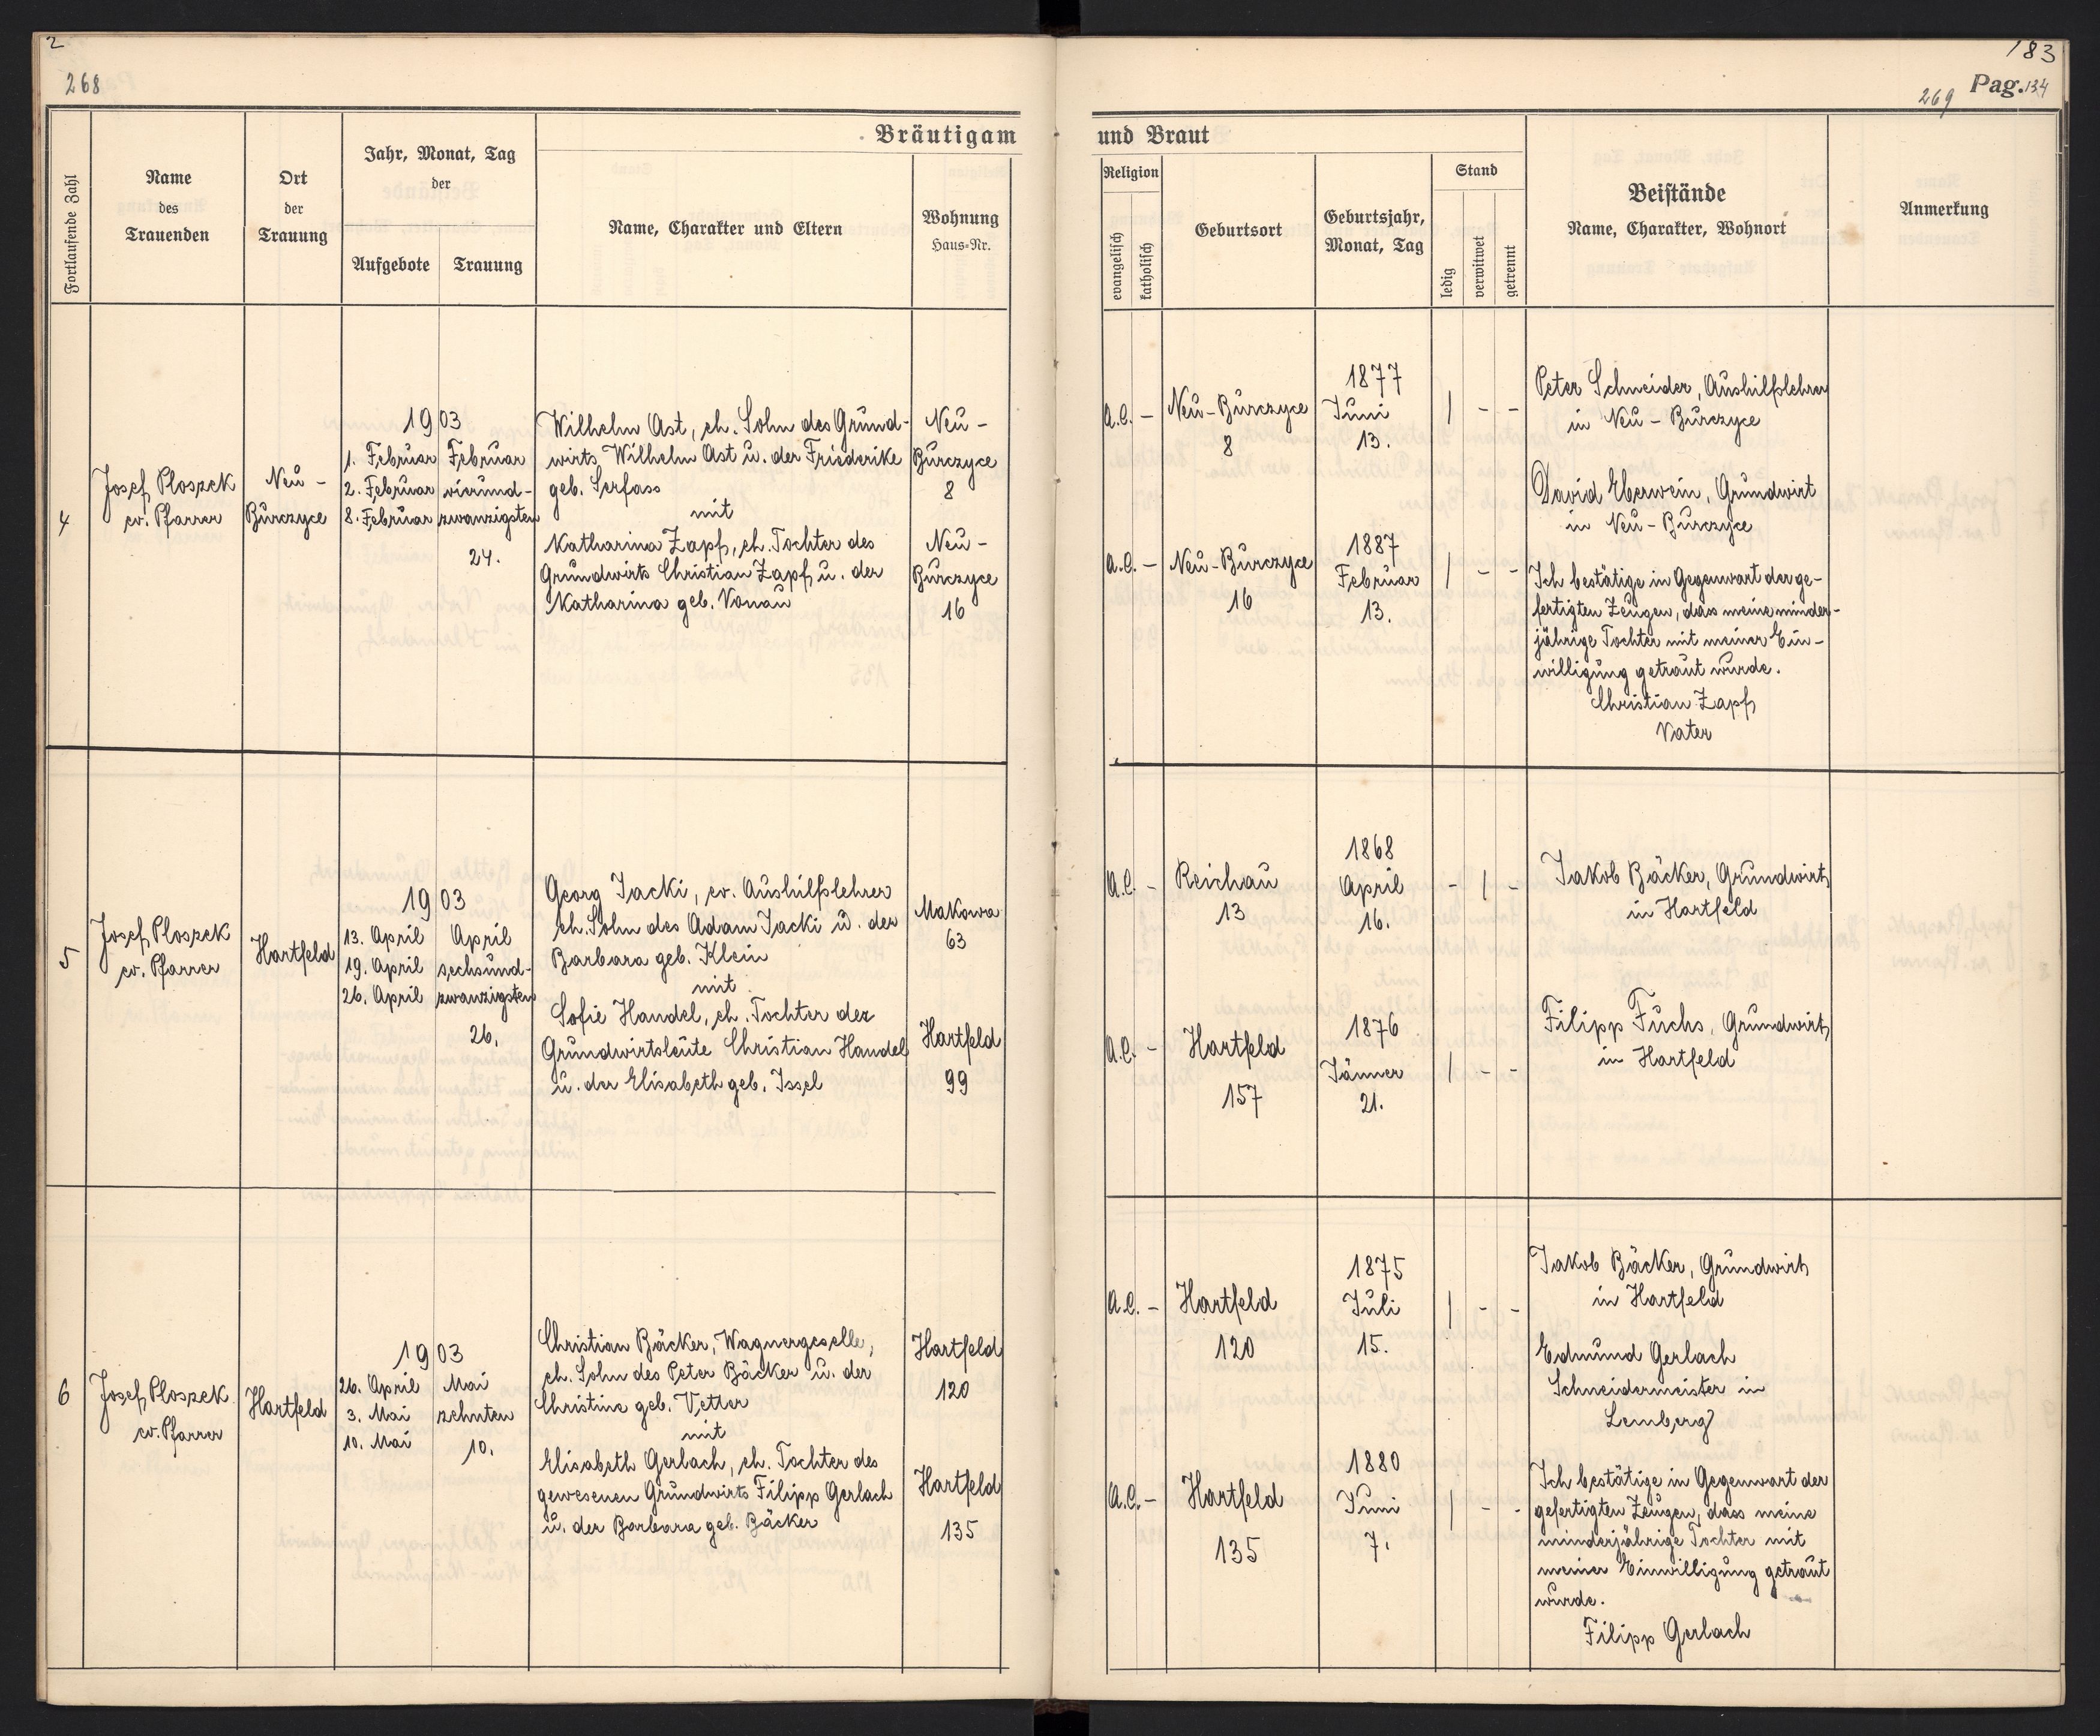 2
268
183
Pag. 134
269
Bräutigam
und Braut
Fortlaufende Zahl
Name
des
Trauenden
Ort
der
Trauung
Jahr, Monat, Tag
der
Aufgebote
Trauung
Name, Charakter und Eltern
Wohnung
Haus-Nr.
Religion
evangelisch
katholisch
Geburtsort
Geburtsjahr,
Monat, Tag
Stand
ledig
verwitwet
getrennt
Beistände
Name, Charakter, Wohnort
Anmerkung
4
Josef Ploszek
ev. Pfarrer
Neu -
Burczyce
1903
1. Februar
2. Februar
8. Februar
Februar
vierund-
zwanzigsten
24.
Wilhelm Ast, eh. Sohn des Grund-
wirts Wilhelm Ast u. der Friederike
geb. Serfass
mit
Katharina Zapf, eh. Tochter des
Grundwirts Christian Zapf u. der
Katharina geb. Vonau
Neu -
Burczyce
8
Neu -
Burczyce
16
A.C. -
Neu - Burczyce
8
1877
Juni
13.
| - -
A.C. -
Neu - Burczyce
16
1887
Februar
13.
| - -
Peter Schneider, Aushilfslehrer
in Neu - Burczyce
David Eberwein, Grundwirt
in Neu - Burczyce
Ich bestätige in Gegenwart der ge-
fertigten Zeugen, dass meine minder-
jährige Tochter mit meiner Ein-
willigung getraut wurde.
Christian Zapf
Vater
5
Josef Ploszek
ev. Pfarrer
Hartfeld
1903
13. April
19. April
26. April
April
sechsund-
zwanzigsten
26.
Georg Jacki, ev. Aushilfslehrer
eh. Sohn des Adam Jacki u. der
Barbara geb. Klein
mit
Sofie Handel, eh. Tochter der
Grundwirtsleute Christian Handel
u. der Elisabeth geb. Issel
Makowa
63
Hartfeld
99
A.C. -
Reichau
13
1868
April
16.
- | -
A.C. -
Hartfeld
157
1876
Jänner
21.
| - -
Jakob Bäcker, Grundwirt
in Hartfeld
Filipp Fuchs, Grundwirt
in Hartfeld
6
Josef Ploszek
ev. Pfarrer
Hartfeld
1903
26. April
3. Mai
10. Mai
Mai
zehnten
10.
Christian Bäcker, Wagnergeselle,
eh. Sohn des Peter Bäcker u. der
Christine geb. Vetter
mit
Elisabeth Gerlach, eh. Tochter des
gewesenen Grundwirts Filipp Gerlach
u. der Barbara geb. Bäcker
Hartfeld
120
Hartfeld
135
A.C. -
Hartfeld
120
1875
Juli
15.
| - -
A.C. -
Hartfeld
135
1880
Juni
7.
| - -
Jakob Bäcker, Grundwirt
in Hartfeld
Edmund Gerlach
Schneidermeister in
Lemberg
Ich bestätige in Gegenwart der
gefertigten Zeugen, dass meine
minderjährige Tochter mit
meiner Einwilligung getraut
wurde.
Filipp Gerlach